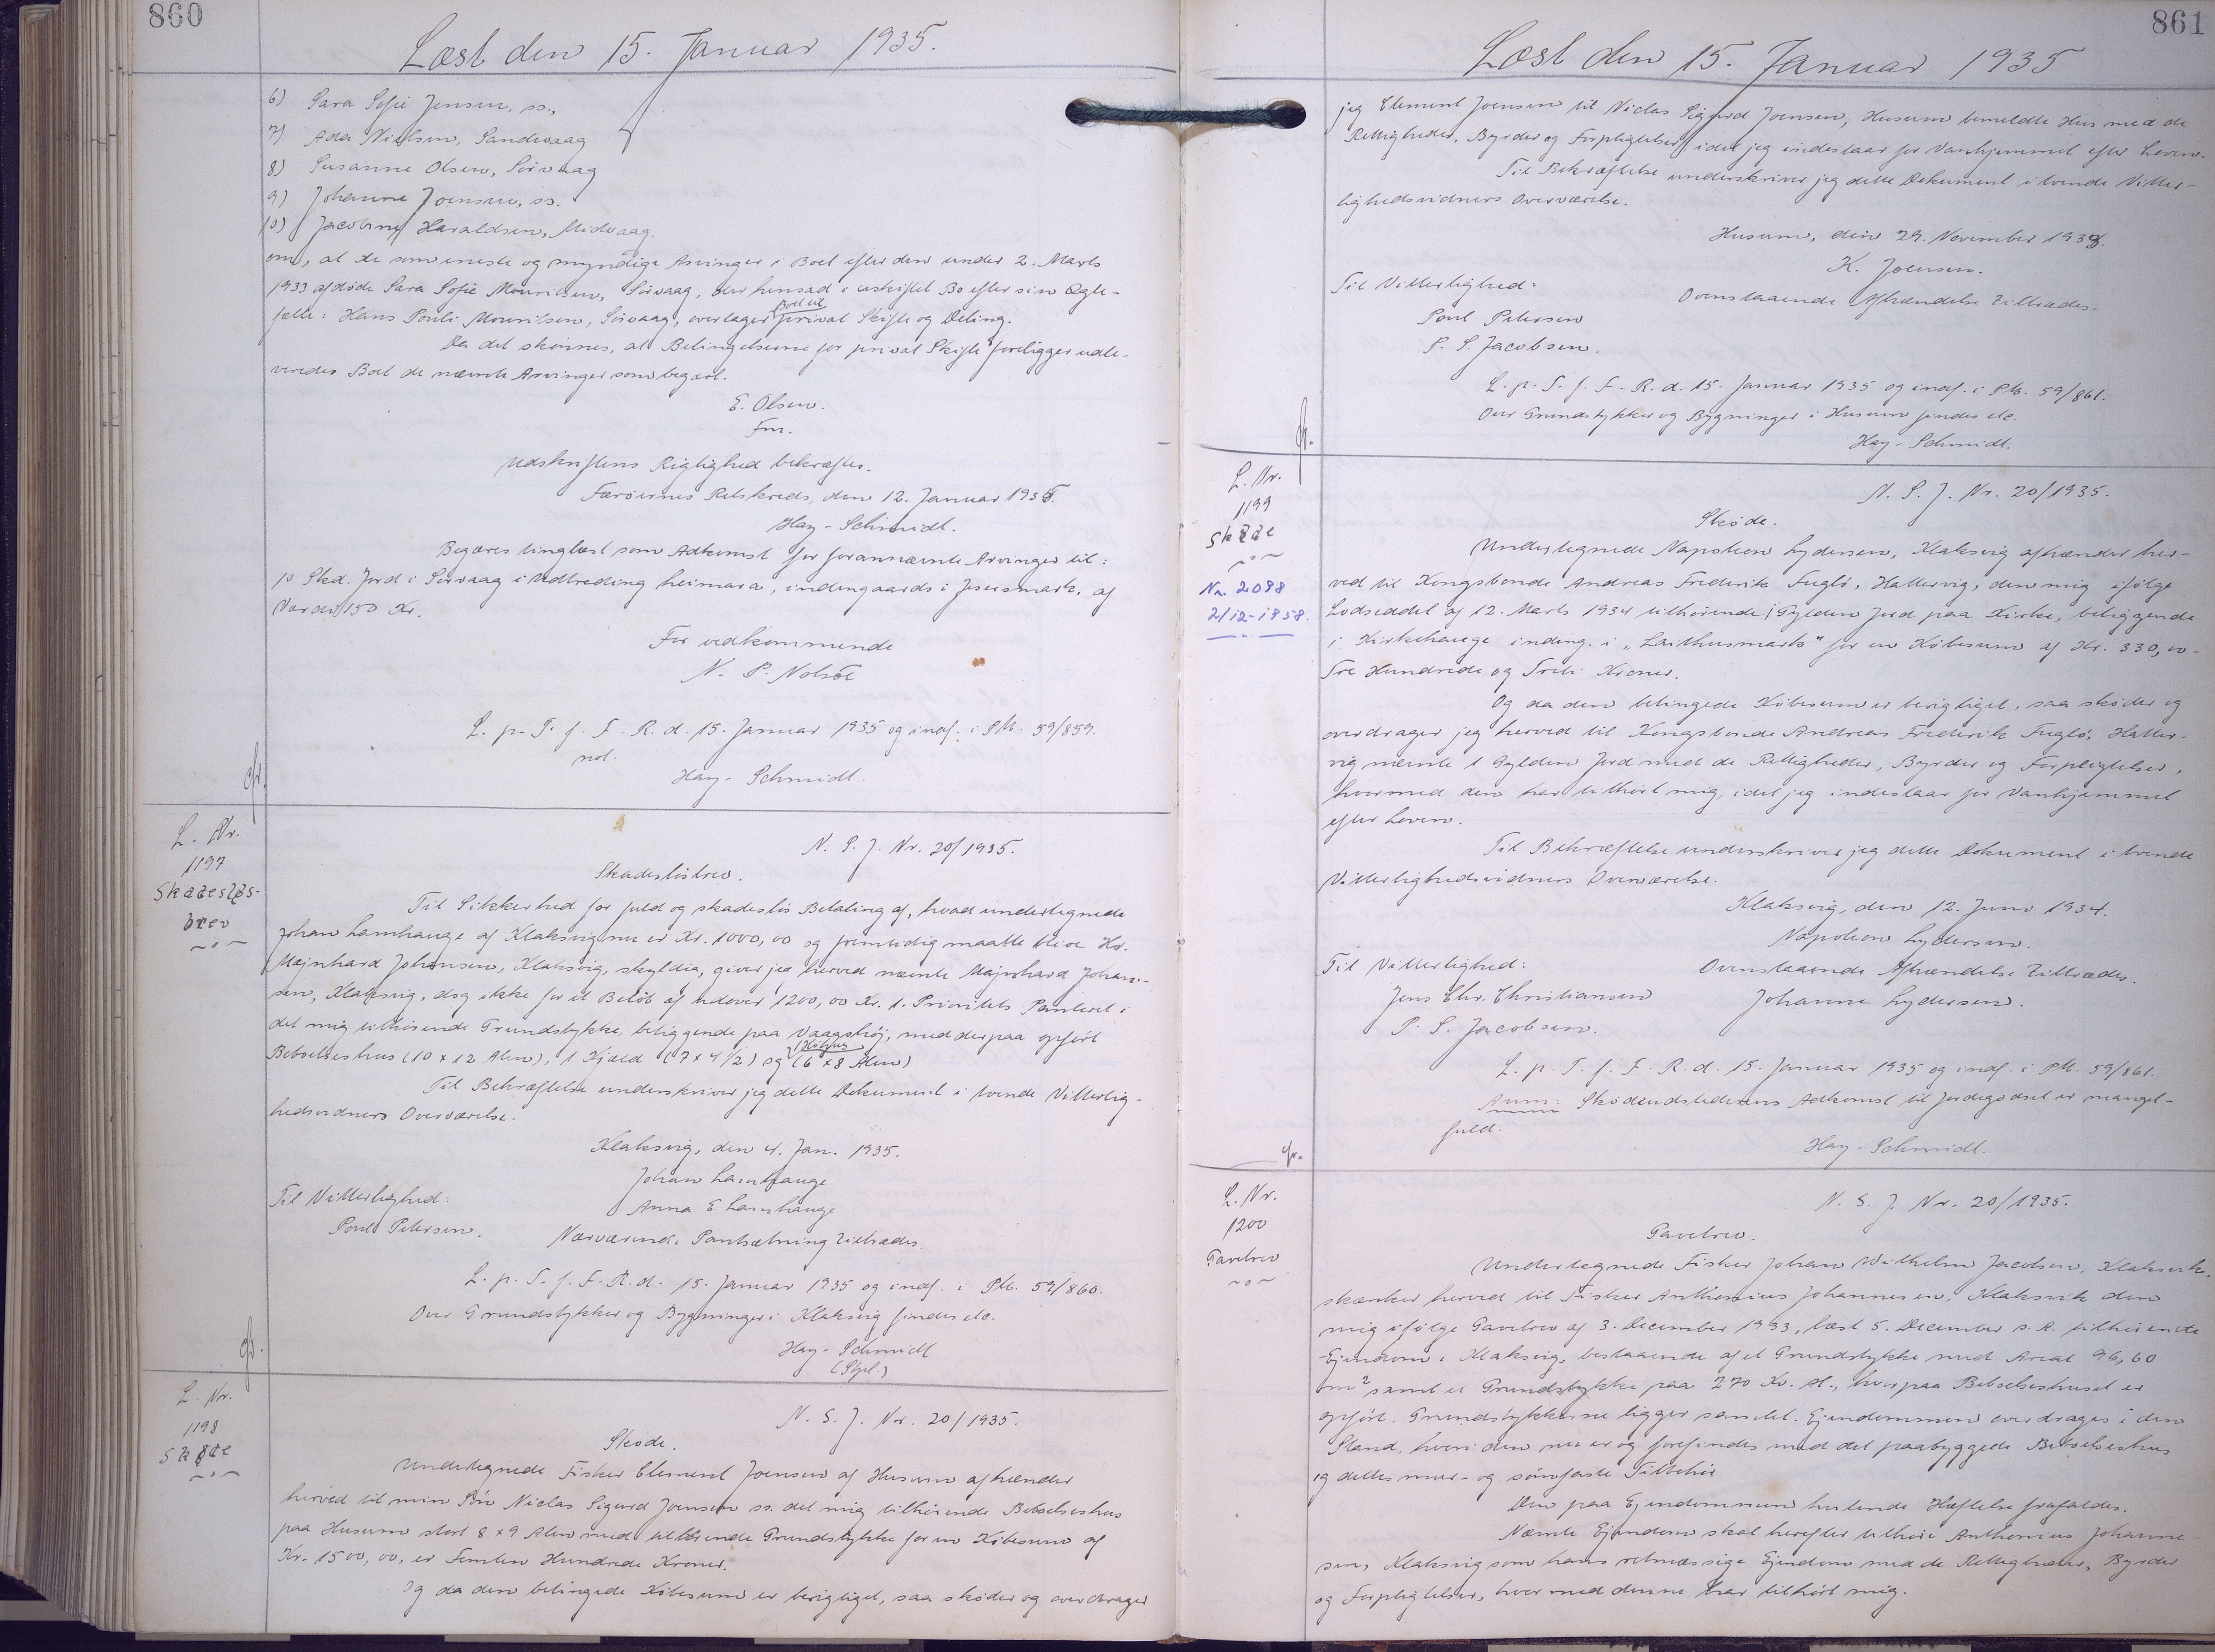 860
Læst den 15. Januar 1935.
6) Sara Sofie Jensen, ss.,
7) Ada Nielsen, Sandvaag
8) Susanne Olsen, Sörvaag
9) Johanne Joensen, ss.
10) Jacobine Haraldsen, Midvaag.
om, at de som eneste og myndige Arvinger i Boet efter den under 2. Marts
1933 afdöde Sara Sofie Mouritsen, Sörvaag, der hensad i uskiftet Bo efter sin Ægte-
fælle: Hans Pouli Mouritsen, Sörvaag, overtager Boet til privat Skifte og Deling.
Da det skönnes, at Betingelserne for privat Skifte foreligger udle-
veredes Boet de nævnte Arvinger som begært.
E. Olsen.
Fm.
Udskriftens Rigtighed bekræftes.
Færöernes Retskreds, den 12. Januar 1935.
Hay-Schmidt.
Begæres tinglæst som Adkomst for forannævnte Arvinger til:
10 Skd. Jord i Sörvaag i Udtreding heimara, indengaards i Jesersmark, af
Værdi 150 Kr.
For vedkommende
N. P. Nolsöe
L. p. T. f. F. R. d. 15. Januar 1935 og indf. i Pb. 59/859.
not.
Hay-Schmidt.
cfr.
L. Nr.
1197
Skadeslös-
brev
N. S. J. Nr. 20/1935.
Skadeslösbrev.
Til Sikkerhed for fuld og skadeslös Betaling af, hvad undertegnede
Johan Lamhauge af Klaksvig nu er Kr. 1000,00 og fremtidig maatte blive Hr.
Majnhard Johansen, Klaksvig, skyldig, giver jeg herved nævnte Majnhard Johan-
sen, Klaksvig, dog ikke for et Belöb af udover 1200,00 Kr. 1. Prioritets Panteret i
det mig tilhörende Grundstykke, beliggende paa Vaagshöj, med derpaa opfört
Beboelseshus (10 x 12 Alen), 1 Kjæld (7 x 4 1/2) og 1 Höhus (6 x 8 Alen)
Til Bekræftelse underskriver jeg dette Dokument i tvende Vitterlig-
hedsvidners Overværelse.
Klaksvig, den 4. Jan. 1935.
Johan Lamhauge
Til Vitterlighed:
Anna E. Lamhauge
Poul Petersen.
Nærværende Pantsætning tiltrædes.
L. p. T. f. F. R. d. 15. Januar 1935 og indf. i Pb. 59/860.
Over Grundstykker og Bygninger i Klaksvig findes etc.
Hay-Schmidt
(Stpl.)
cfr.
L. Nr.
1198
Sköde
N. S. J. Nr. 20/1935.
Sköde.
Undertegnede Fisker Clement Joensen af Husum afhænder
herved til min Sön Niclas Sigurd Joensen ss. det mig tilhörende Beboelseshus
paa Husum stort 8 x 9 Alen med tilhörende Grundstykke for en Köbesum af
Kr. 1500,00, er Femten Hundrede Kroner.
Og da den betingede Köbesum er berigtiget, saa sköder og overdrager
861
Læst den 15. Januar 1935
jeg Clement Joensen til Niclas Sigurd Joensen, Husum bemeldte Hus med de
Rettigheder, Byrder og Forpligtelser, idet jeg indestaar for Vanhjemmel efter Loven.
Til Bekræftelse underskriver jeg dette Dokument i tvende Vitter-
lighedsvidners Overværelse.
Husum, den 29. November 1934.
K. Joensen.
Til Vitterlighed:
Ovenstaaende Afhændelse tiltrædes.
Poul Petersen
P. S. Jacobsen.
L. p. T. f. F. R. d. 15. Januar 1935 og indf. i Pb. 59/861.
Over Grundstykker og Bygninger i Husum findes etc.
Hay-Schmidt.
cfr.
L. Nr.
1199
Sköde
Nr. 2088
2/12-1958.
N. S. J. Nr. 20/1935.
Sköde.
Undertegnede Napoleon Lydersen, Klaksvig afhænder her-
ved til Kongsbonde Andreas Frederik Fuglö, Hattervig, den mig ifölge
Lodseddel af 12. Marts 1934 tilhörende 1 Gylden Jord paa Kirke, beliggende
i Kirkehauge indeng. i "Laithusmark" for en Köbesum af Kr. 330,00 -
Tre Hundrede og Treti Kroner.
Og da den betingede Köbesum er berigtiget, saa sköder og
overdrager jeg herved til Kongsbonde Andreas Frederik Fuglö, Hatter-
vig nævnte 1 Gylden Jord med de Rettigheder, Byrder og Forpligtelser,
hvormed den har tilhört mig, idet jeg indestaar for Vanhjemmel
efter Loven.
Til Bekræftelse underskriver jeg dette Dokument i tvende
Vitterlighedsvidners Overværelse.
Klaksvig, den 12. Juni 1934.
Napoleon Lydersen.
Til Vitterlighed:
Ovenstaaende Afhændelse tiltrædes.
Jens Chr. Christiansen
Johanne Lydersen.
P. S. Jacobsen.
L. p. T. f. F. R. d. 15. Januar 1935 og indf. i Pb. 59/861.
Anm: Sködeudstederens Adkomst til Jordegodset er mangel-
fuld.
Hay-Schmidt.
cfr.
L. Nr.
1200
Gavebrev
N. S. J. Nr. 20/1935.
Gavebrev.
Undertegnede Fisker Johan Wilhelm Jacobsen, Klaksvik,
skænker herved til Fisker Anthonius Johannesen, Klaksvik den
mig ifölge Gavebrev af 3. December 1933, læst 5. December s. A. tilhörende
Ejendom i Klaksvig, bestaaende af et Grundstykke med Areal 96,60
m² samt et Grundstykke paa 270 Kv. Al., hvorpaa Beboelseshuset er
opfört. Grundstykkerne ligger samlet. Ejendommen overdrages i den
Stand, hvori den nu er og forefindes med det paabyggede Beboelseshus
og dettes mur- og sömfaste Tilbehör
Den paa Ejendommen hvilende Hæftelse frafaldes.
Nævnte Ejendom skal herefter tilhöre Anthonius Johanne-
sen, Klaksvig som hans retmæssige Ejendom med de Rettigheder, Byrder
og Forpligtelser, hvormed denne har tilhört mig.